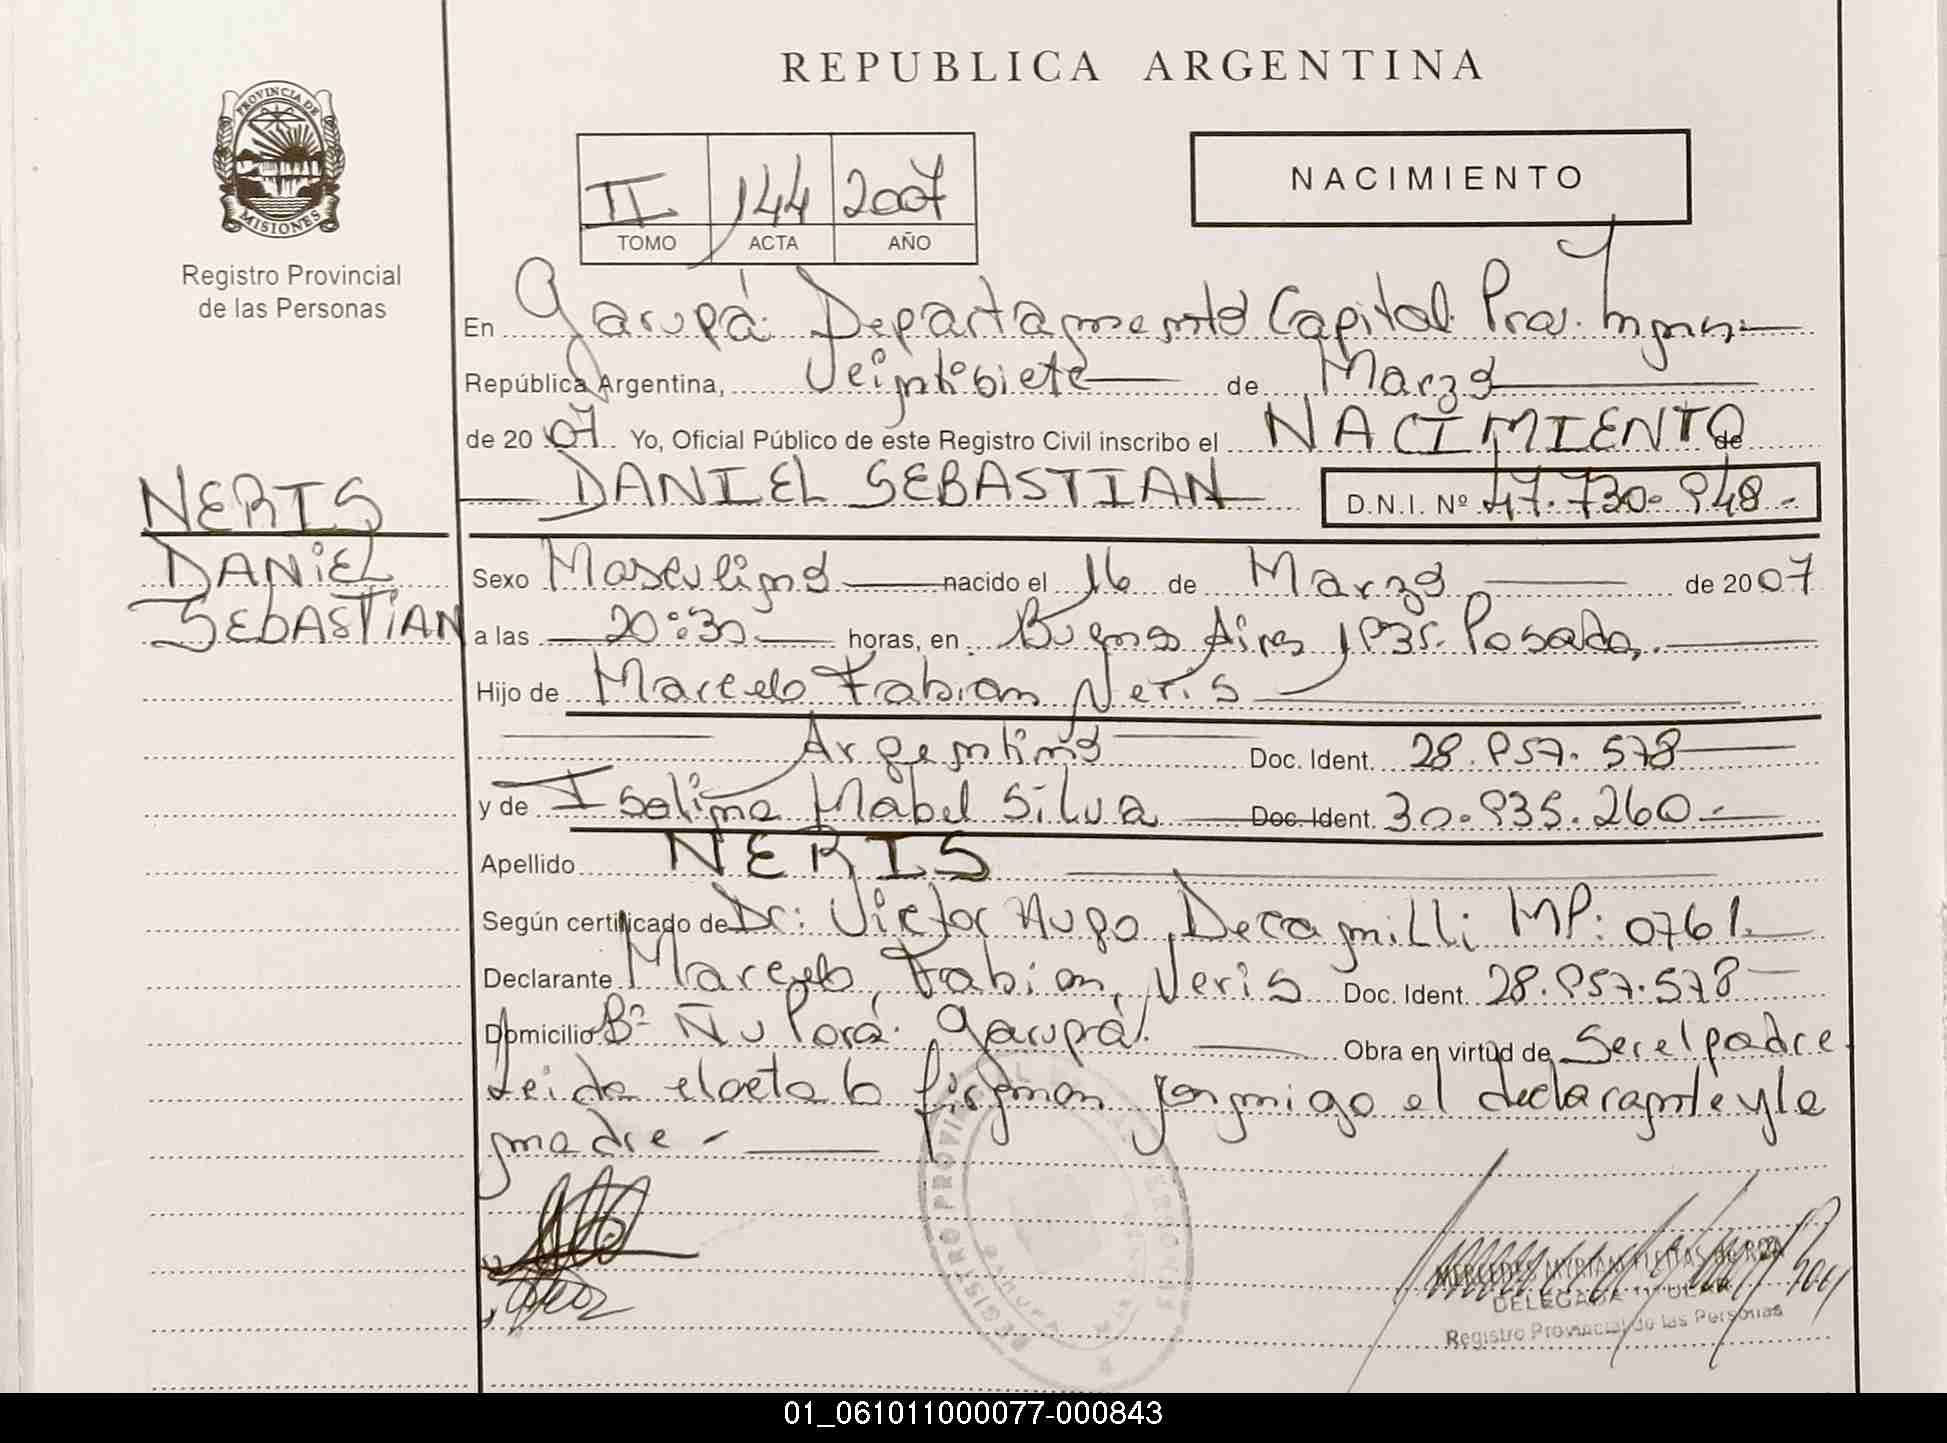 REPUBLICA ARGENTINA
PROVINCIA DE
MISIONES
Registro Provincial
de las Personas
II 144 2007
TOMO ACTA AÑO
NACIMIENTO
En Garupá Departamento Capital Prov.
República Argentina, Veintisiete de Marzo
de 2007 Yo, Oficial Público de este Registro Civil inscribo el NACIMIENTO de
DANIEL SEBASTIAN D.N.I. Nº 47.730.948.-
NERIS
DANIEL
SEBASTIAN
Sexo Masculino nacido el 16 de Marzo de 2007
a las 20:30 horas, en Buenos Aires 1935. Posadas.
Hijo de Marcelo Fabian Neris
Argentino Doc. Ident. 28.957.578
y de Isolina Mabel Silva Doc. Ident. 30.935.260.-
Apellido NERIS
Según certificado de Dr: Victor Hugo Decamilli MP: 0761.
Declarante Marcelo Fabian Neris Doc. Ident. 28.957.578
Domicilio Bº Ñu Porá. Garupá. Obra en virtud de Ser el padre.
Leida el acta lo firman conmigo el declarante y la
madre.-
REGISTRO PROVINCIAL DE LAS PERSONAS
MERCEDES MYRIAM FLEITAS de ROA
DELEGADA TITULAR
Registro Provincial de las Personas
01_061011000077-000843